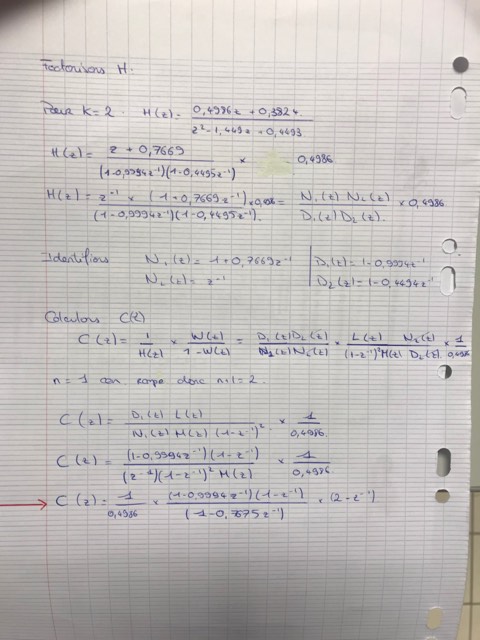 Factorisons H.
Pour K=2. H(z) = (0,4986z + 0,3824) / (z² - 1,449z + 0,4493)
H(z) = (z + 0,7669) / ((1-0,9994z⁻¹)(1-0,4495z⁻¹)) × 0,4986
H(z) = (z⁻¹ × (1+0,7669z⁻¹) × 0,4986) / ((1-0,9994z⁻¹)(1-0,4495z⁻¹)) = (N₁(z) N₂(z)) / (D₁(z) D₂(z)) × 0,4986
Identifions N₁(z) = 1+0,7669z⁻¹ | D₁(z) = 1-0,9994z⁻¹
N₂(z) = z⁻¹ | D₂(z) = 1-0,4494z⁻¹
Calculons C(z)
C(z) = 1/H(z) × W(z)/(1-W(z)) = (D₁(z)D₂(z))/(N₁(z)N₂(z)) × L(z)/((1-z⁻¹)²M(z)) N₂(z)/D₂(z) × 1/0,4986
n=1 car rampe donc n+1=2.
C(z) = (D₁(z) L(z)) / (N₁(z) M(z) (1-z⁻¹)²) × 1/0,4986
C(z) = ((1-0,9994z⁻¹)(1-z⁻¹)) / ((z⁻¹)(1-z⁻¹)² M(z)) × 1/0,4986
C(z) = 1/0,4986 × ((1-0,9994z⁻¹)(1-z⁻¹)) / (1-0,7675z⁻¹) × (2-z⁻¹)